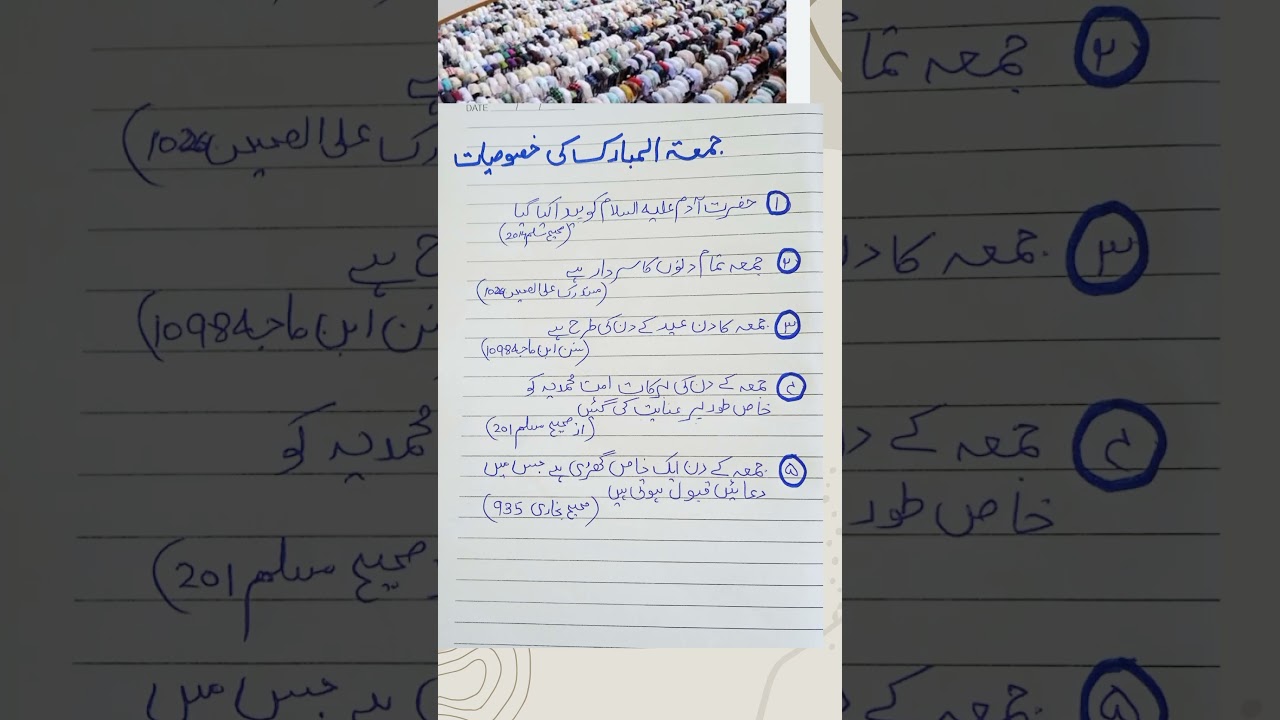 DATE / /
جمعۃ المبارک کی خصوصیات
۱ حضرت آدم علیہ السلام کو پیدا کیا گیا
(صحیح مسلم 201)
۲ جمعہ تمام دنوں کا سردار ہے
(مستدرک علی الصحیحین 1026)
۳ جمعہ کا دن عید کے دن کی طرح ہے
(سنن ابن ماجہ 1098)
۴ جمعہ کے دن کی برکات امت محمدیہ کو
خاص طور پر عنایت کی گئیں
(از صحیح مسلم 201)
۵ جمعہ کے دن ایک خاص گھڑی ہے جس میں
دعائیں قبول ہوتی ہیں
(صحیح بخاری 935)